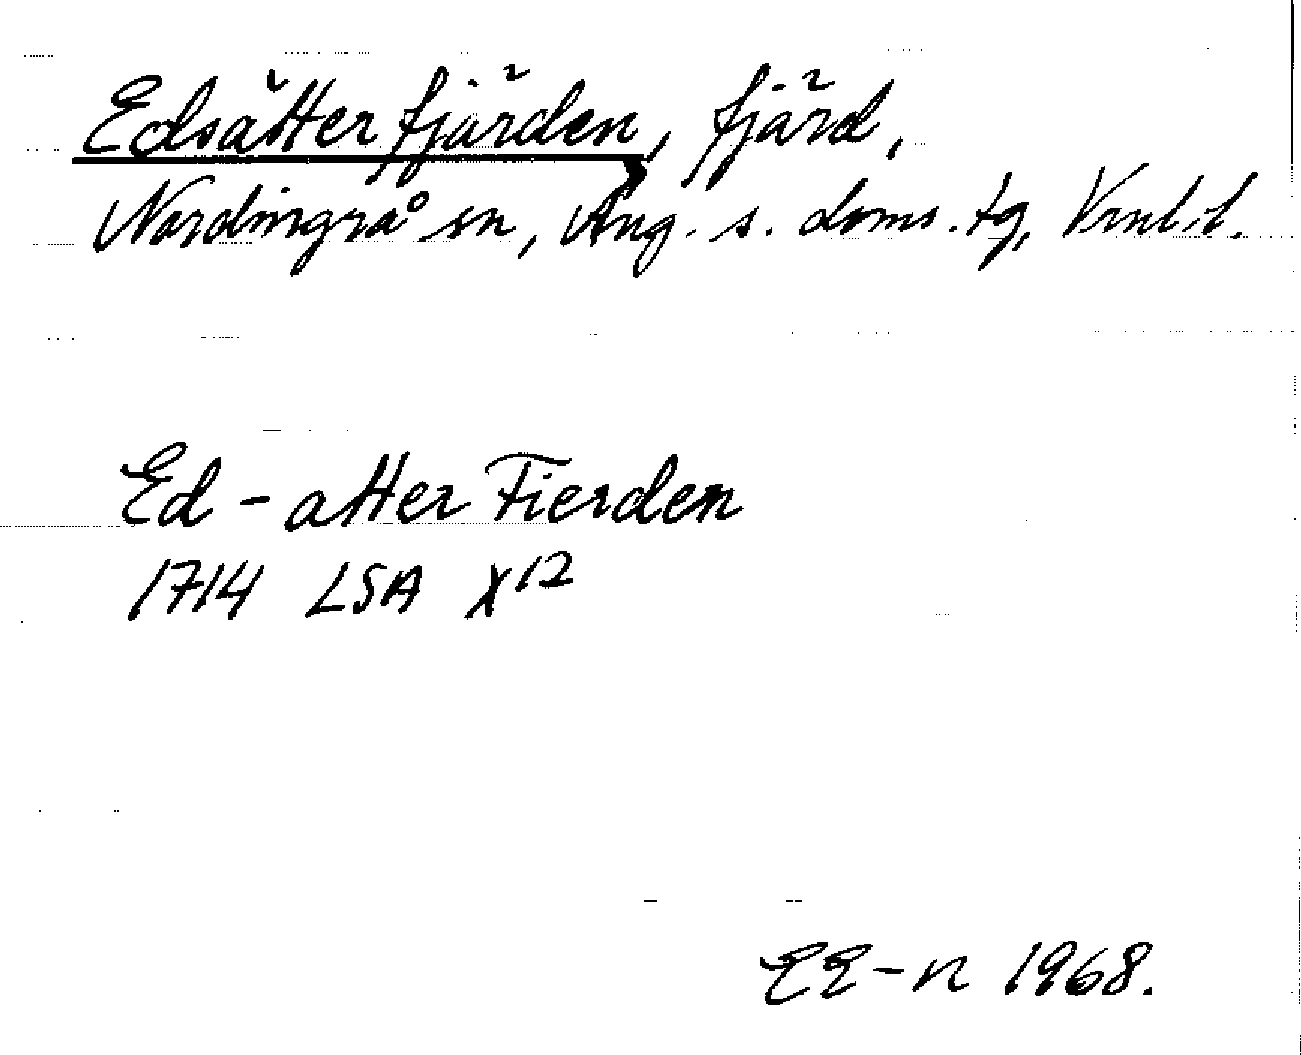 Edsätterfjärden, fjärd,
Nordingrå sn, Ång. s. doms. tg, Vrnl. l.
Ed - atter Fierden
1714 LSA X12
EE-n 1968.